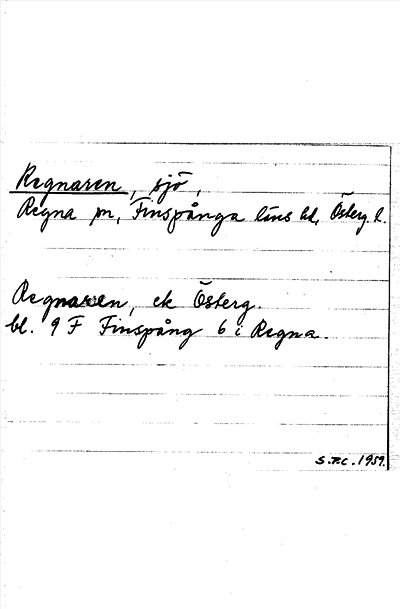 Regnaren, sjö,
Regna sn, Finspånga läns hd, Österg. l.
Regnaren, ek Österg.
bl. 9 F Finspång 6 i Regna.
S.F.C. 1959.